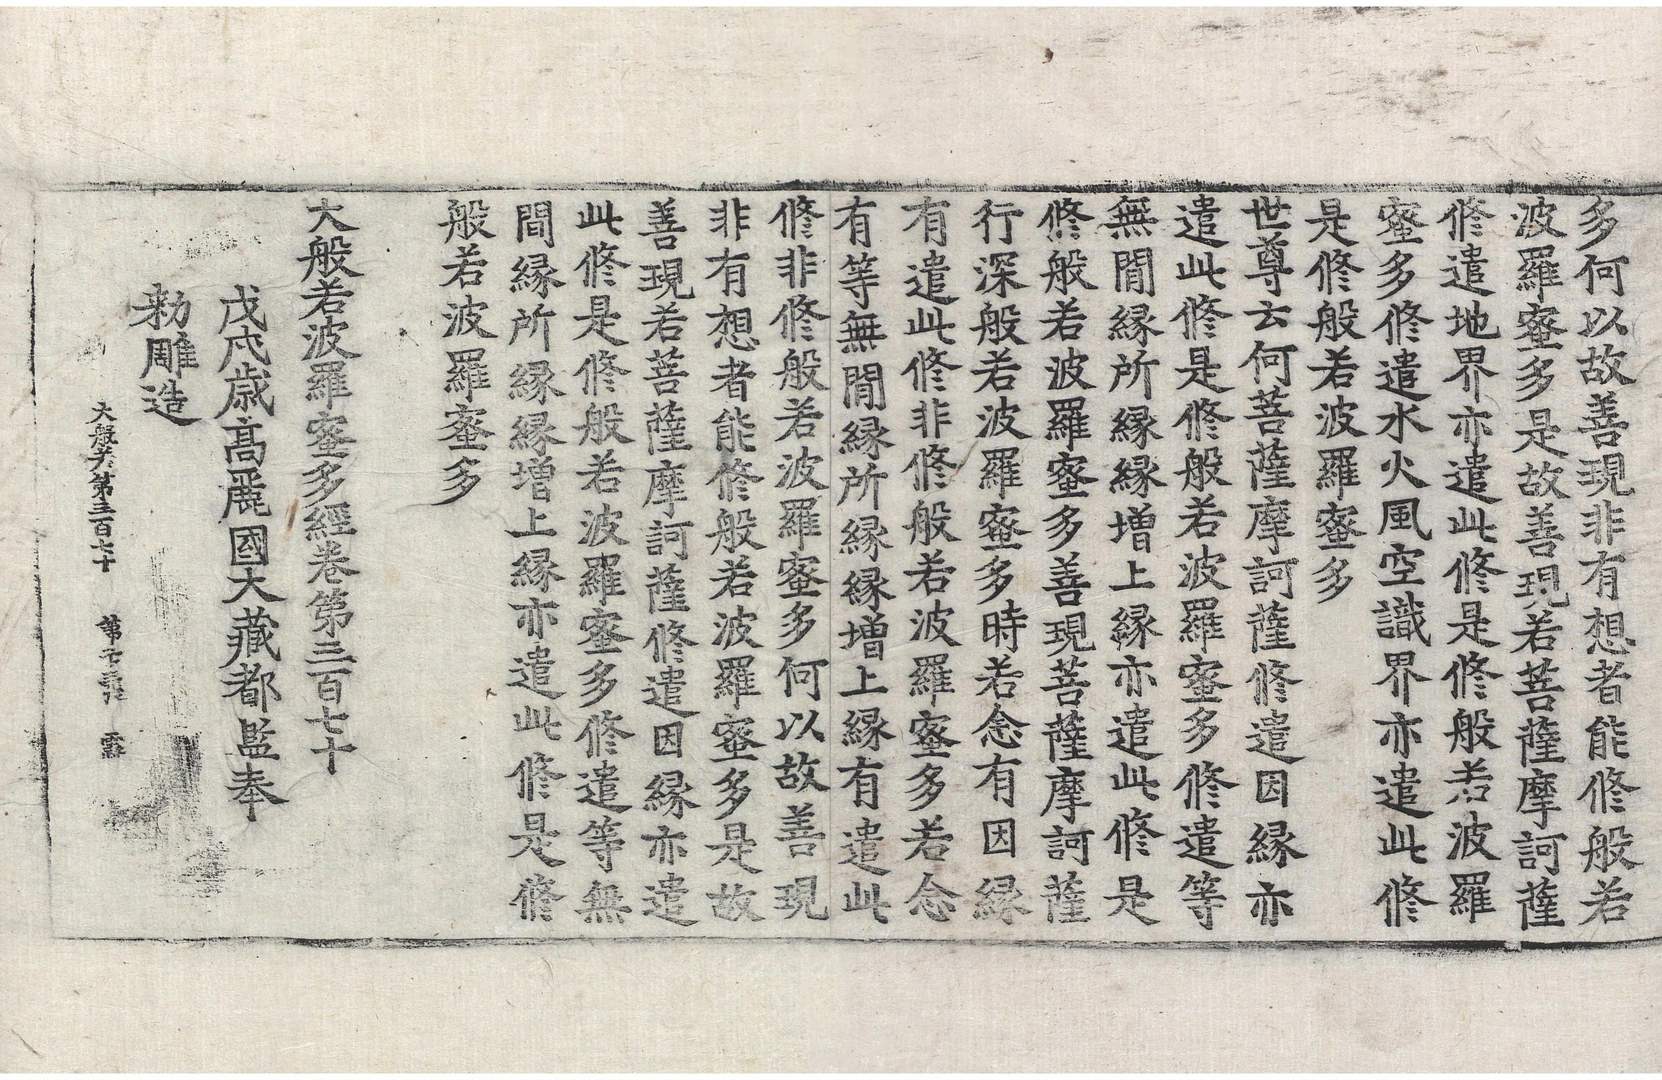 多何以故善現非有想者能修般若
波羅蜜多是故善現若菩薩摩訶薩
修遣地界亦遣此修是修般若波羅
蜜多修遣水火風空識界亦遣此修
是修般若波羅蜜多
世尊云何菩薩摩訶薩修遣因緣亦
遣此修是修般若波羅蜜多修遣等
無間緣所緣緣增上緣亦遣此修是
修般若波羅蜜多善現菩薩摩訶薩
行深般若波羅蜜多時若念有因緣
有遣此修非修般若波羅蜜多若念
有等無間緣所緣緣增上緣有遣此
修非修般若波羅蜜多何以故善現
非有想者能修般若波羅蜜多是故
善現若菩薩摩訶薩修遣因緣亦遣
此修是修般若波羅蜜多修遣等無
間緣所緣緣增上緣亦遣此修是修
般若波羅蜜多
大般若波羅蜜多經卷第三百七十
戊戌歲高麗國大藏都監奉
勑雕造
大般若第三百七十 第 張 霜